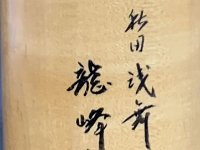 秋田浅舞
龍峰